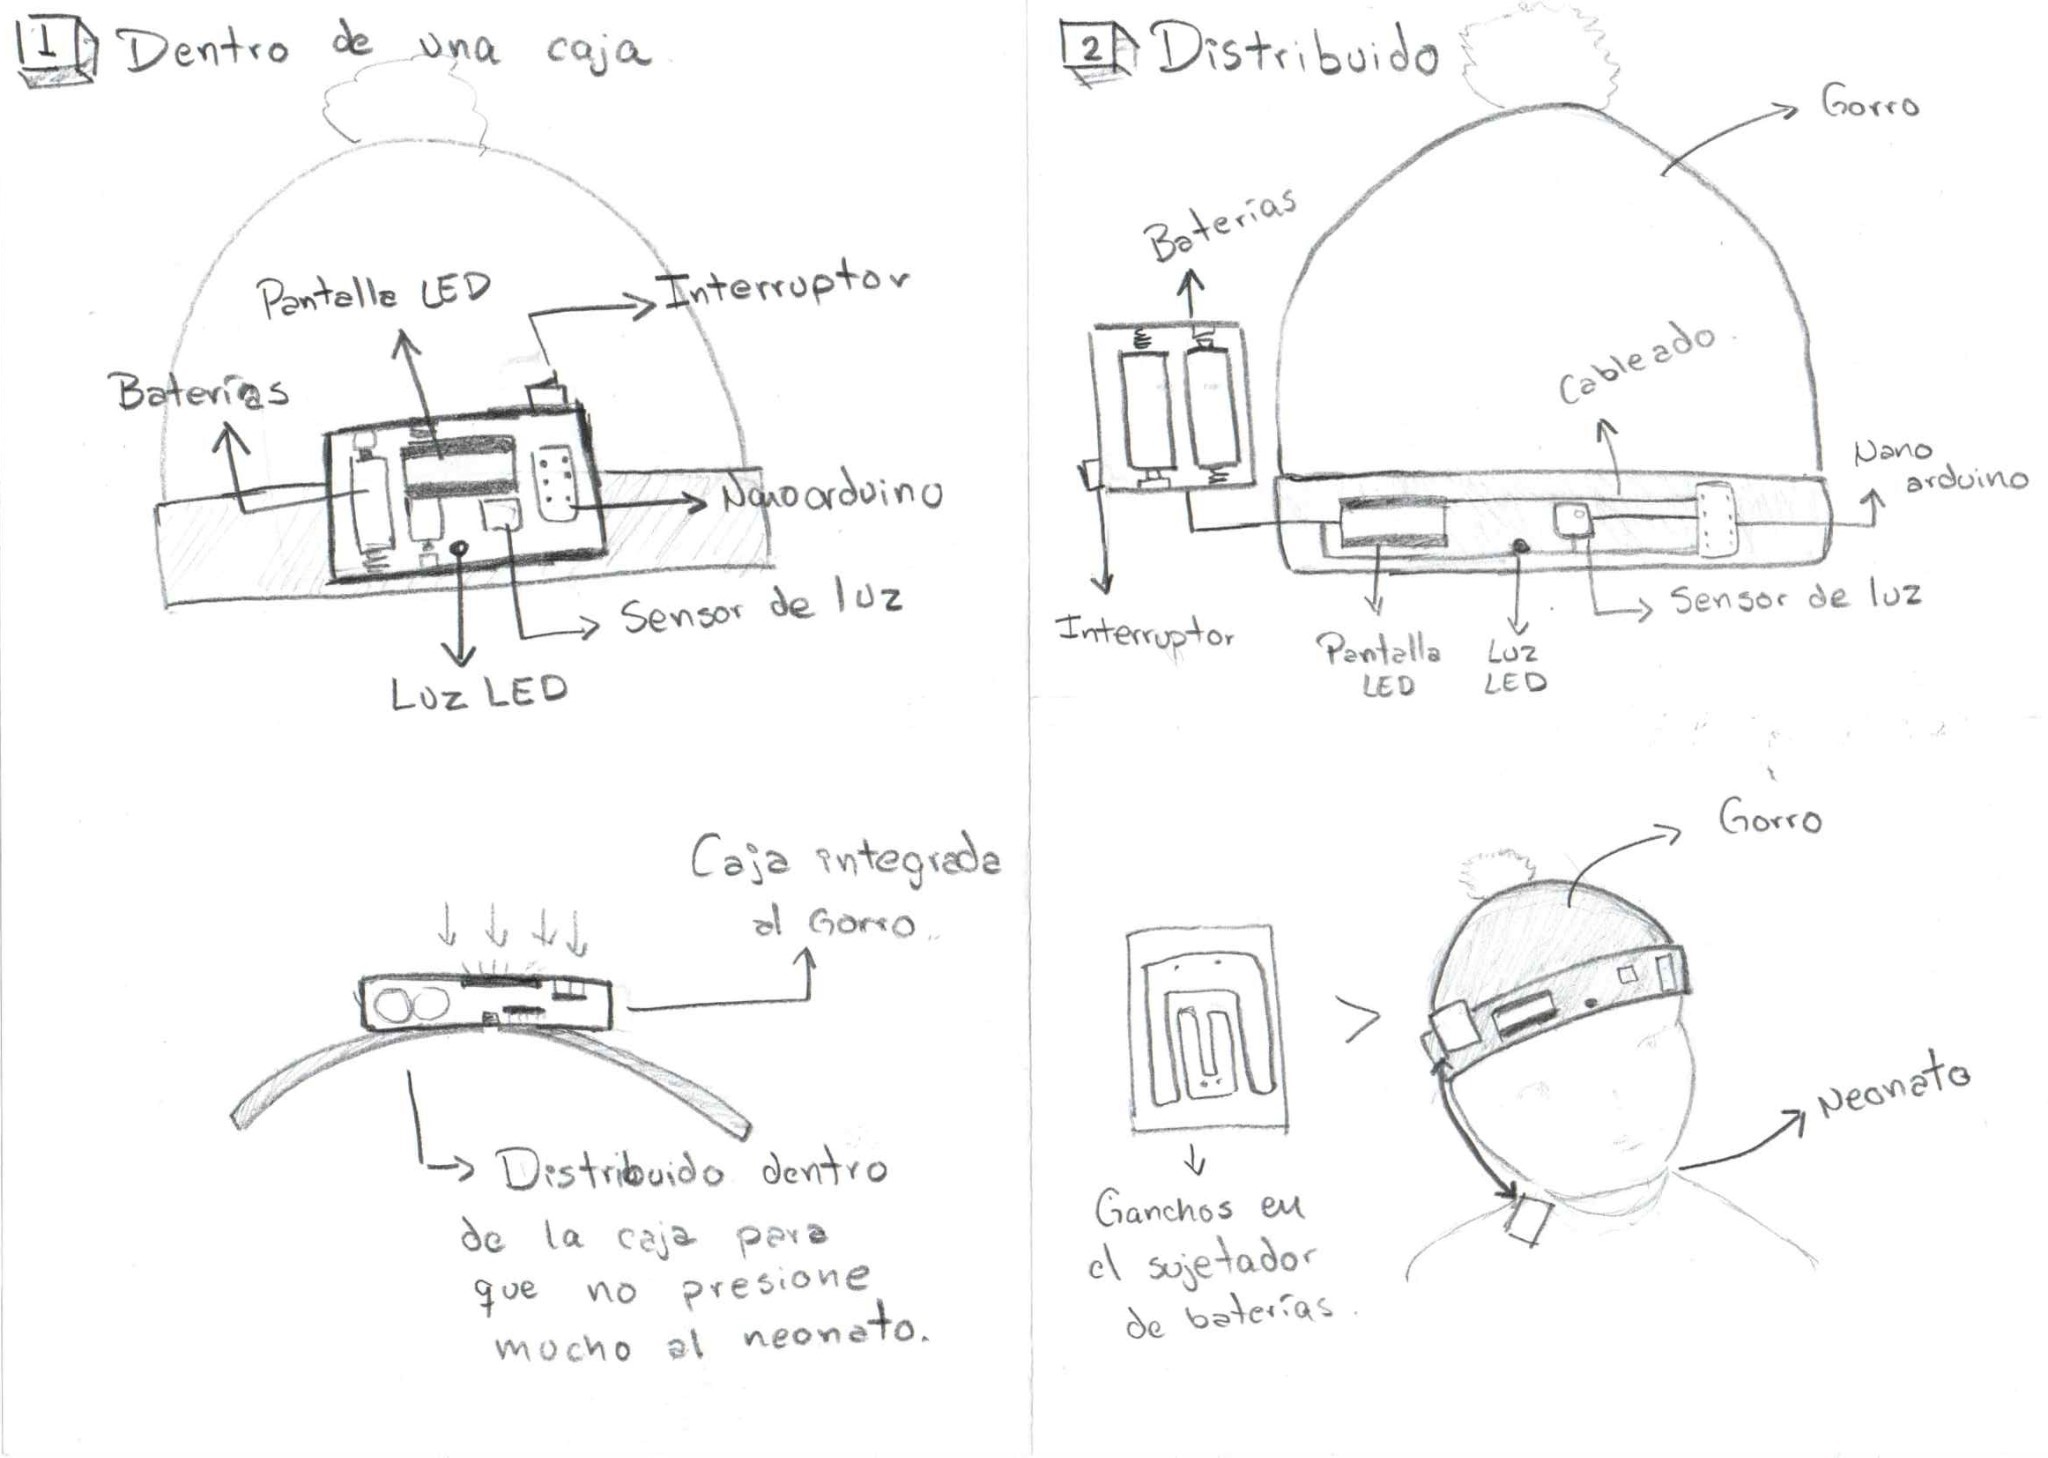 1 Dentro de una caja
Pantalla LED
Interruptor
Baterías
Nanoarduino
Sensor de luz
Luz LED
Caja integrada
al Gorro.
Distribuido dentro
de la caja para
que no presione
mucho al neonato.
2 Distribuido
Gorro
Baterías
Cableado
Nano
arduino
Sensor de luz
Interruptor
Pantalla
LED
Luz
LED
Gorro
Neonato
Ganchos en
el sujetador
de baterías.